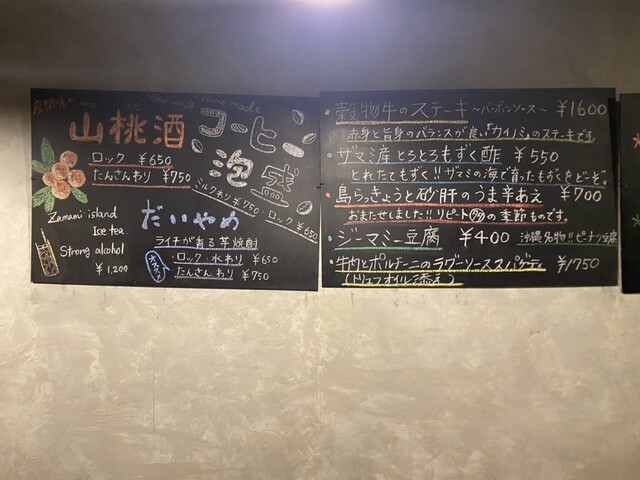 座間味産
ヤマ モモ
山桃酒
ロック ¥650
たんさんわり ¥750
Home made
コーヒー
泡盛
ミルクわり ¥750
ロック ¥650
Zamami island
Ice tea
Strong alcohol
¥1,200
だいやめ
ライチが香る芋焼酎
・ロック・水わり ¥650
たんさんわり ¥750
・穀物牛のステーキ〜バーボンソース〜 ¥1600
赤身と旨身のバランスが良い「カイノミ」のステーキです
・ザマミ産とろとろもずく酢 ¥550
とれたてもずく!!ザマミの海で育ったもずくをどーぞ。
・島らっきょうと砂肝のうま辛あえ ¥700
おまたせしました!!リピート多の季節ものです。
・ジーマミー豆腐 ¥400 沖縄名物!!ピーナツ豆腐
・牛肉とポルチーニのラグーソーススパゲティ ¥1750
(トリュフオイル添え)